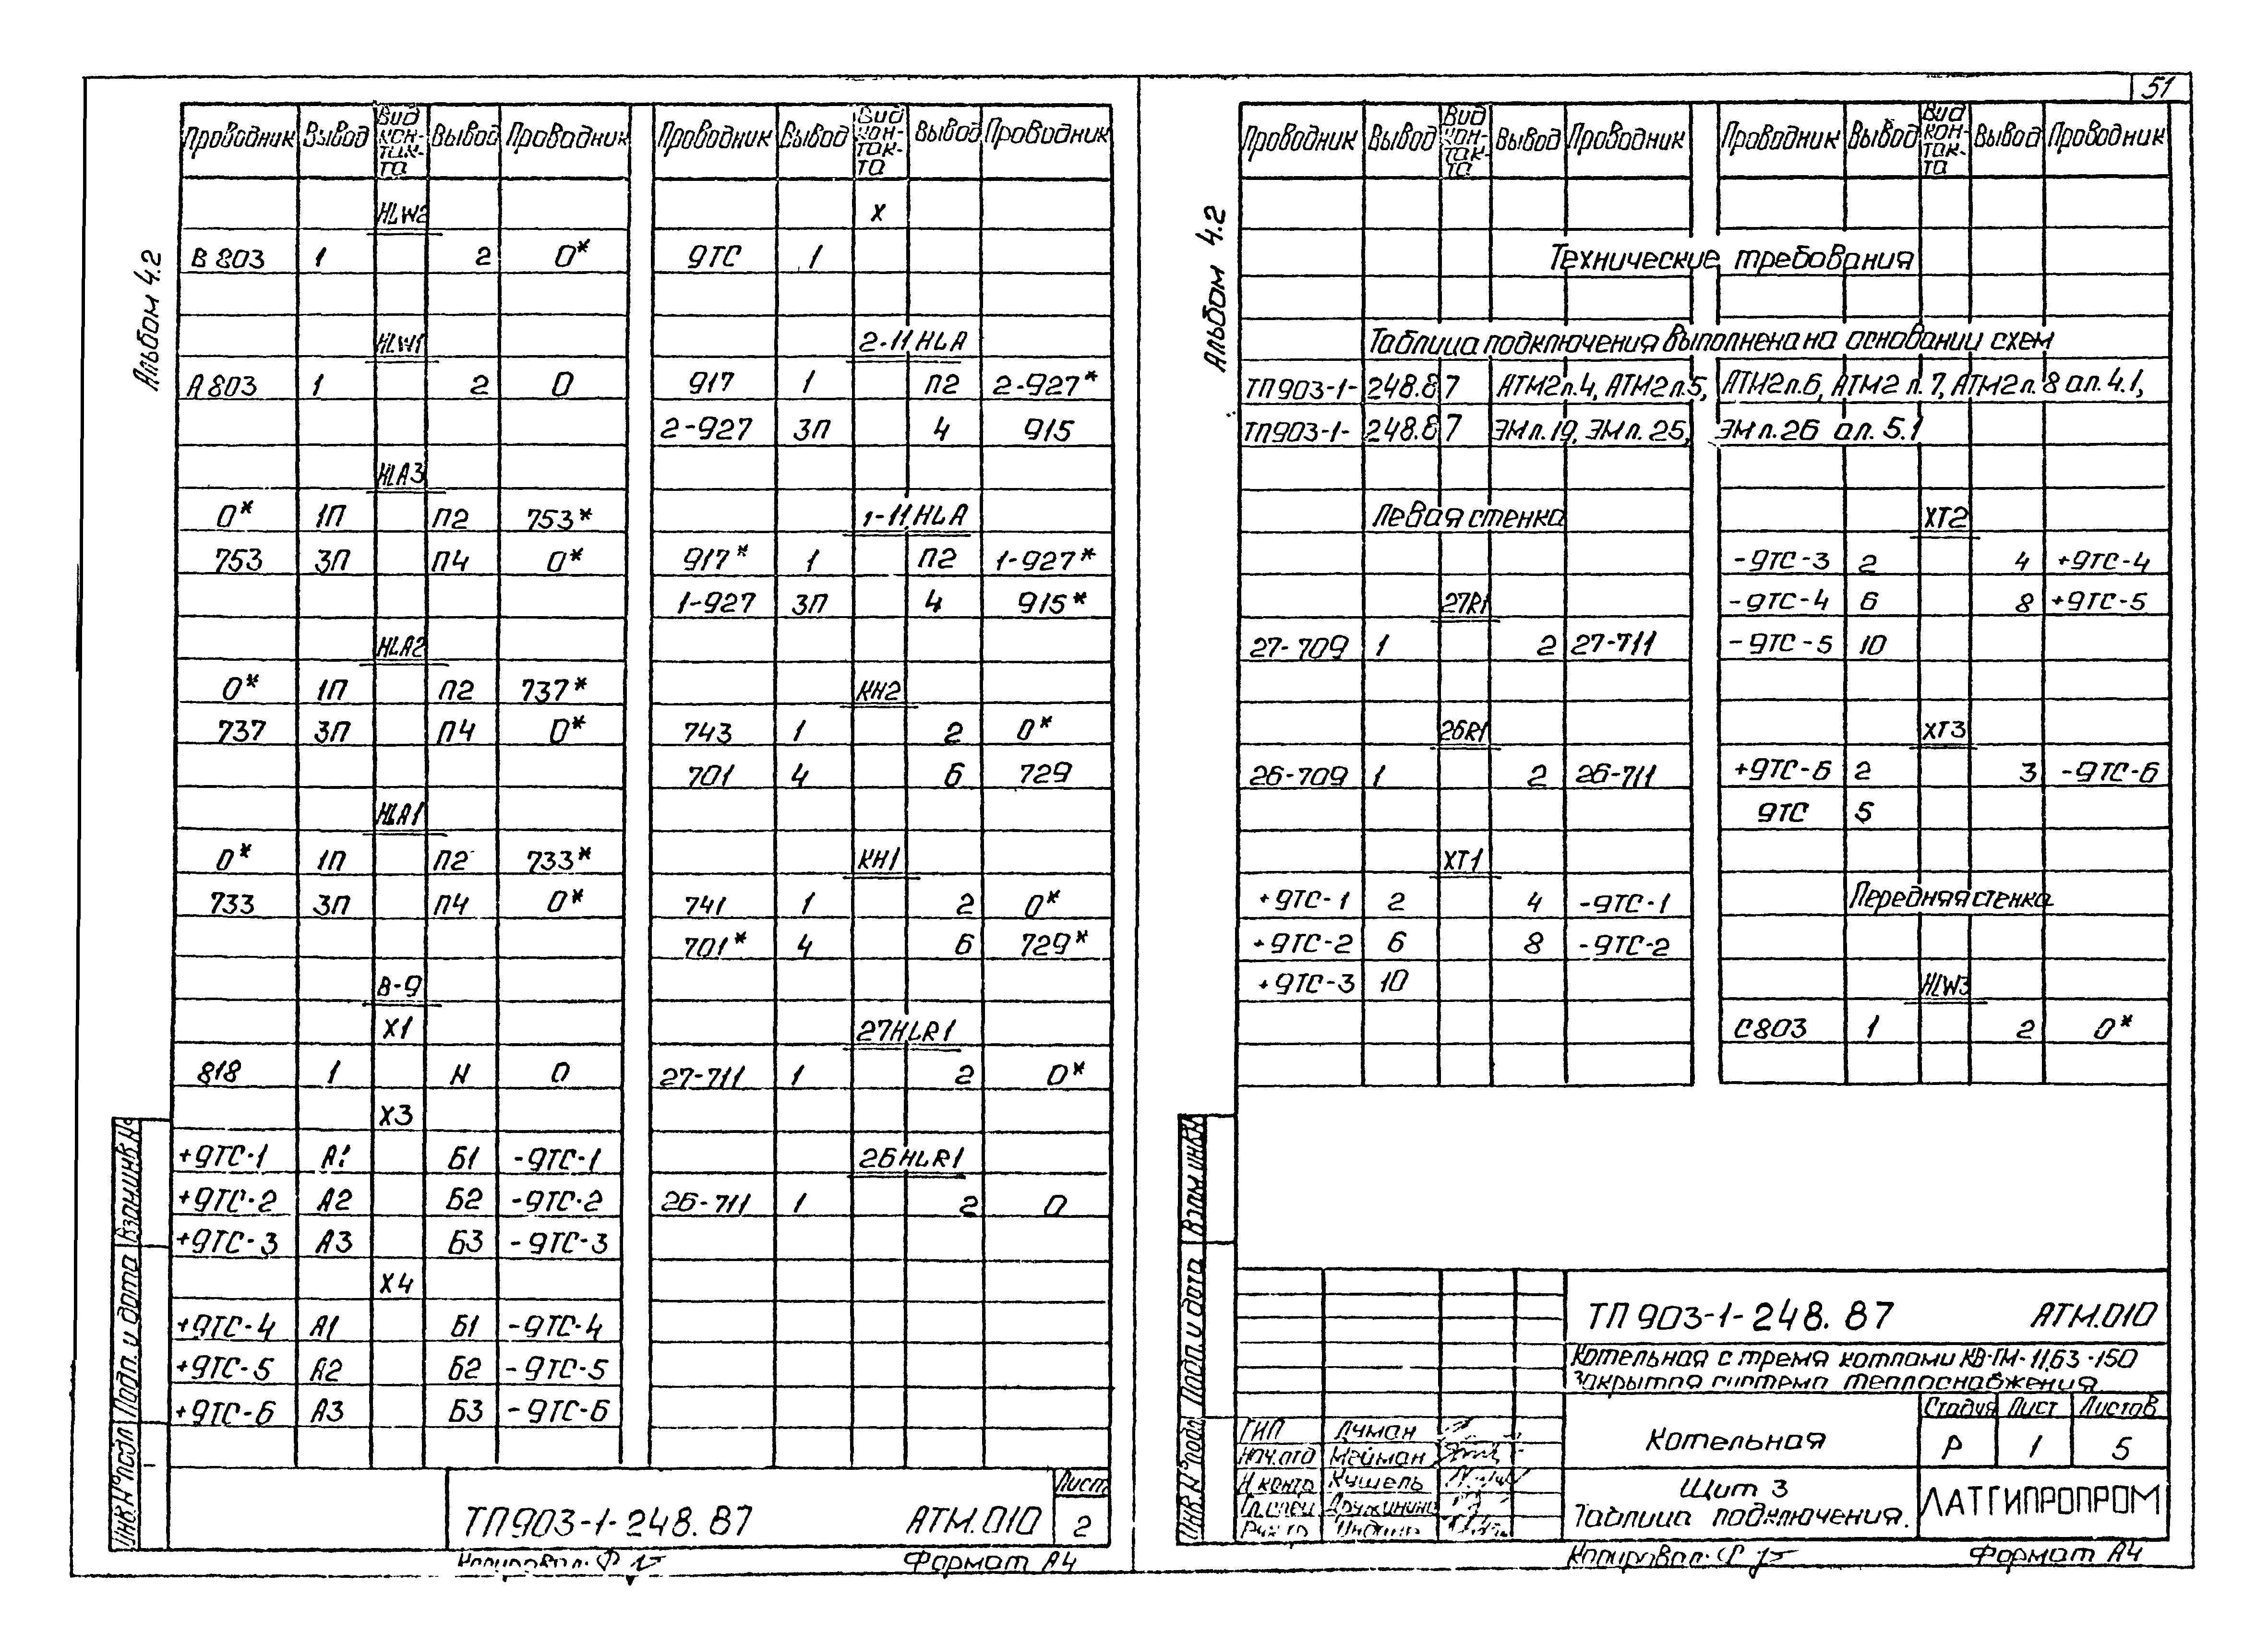 51
Альбом 4.2
Проводник Вывод Вид кон-так-та Вывод Проводник
HLW2
В803 1 2 0*
HLW1
А803 1 2 0
HLA3
0* 1П П2 753*
753 3П П4 0*
HLA2
0* 1П П2 737*
737 3П П4 0*
HLA1
0* 1П П2 733*
733 3П П4 0*
В-9
X1
818 1 N 0
X3
+9ТС-1 А1 Б1 -9ТС-1
+9ТС-2 А2 Б2 -9ТС-2
+9ТС-3 А3 Б3 -9ТС-3
X4
+9ТС-4 А1 Б1 -9ТС-4
+9ТС-5 А2 Б2 -9ТС-5
+9ТС-6 А3 Б3 -9ТС-6
Проводник Вывод Вид кон-так-та Вывод Проводник
X
9ТС 1
2-11HLA
917 1 П2 2-927*
2-927 3П 4 915
1-11HLA
917* 1 П2 1-927*
1-927 3П 4 915*
КН2
743 1 2 0*
701 4 6 729
КН1
741 1 2 0*
701* 4 6 729*
27HLR1
27-711 1 2 0*
26HLR1
26-711 1 2 0
Инв.№ подл. Подп. и дата Взам.инв.№
ТП903-1-248.87 АТМ.010
Лист
2
Копировал:
Формат А4
Альбом 4.2
Проводник Вывод Вид кон-так-та Вывод Проводник
Проводник Вывод Вид кон-так-та Вывод Проводник
Технические требования
Таблица подключения выполнена на основании схем
ТП903-1-248.87 АТМ2л.4, АТМ2л.5, АТМ2л.6, АТМ2 л.7, АТМ2л.8 ал.4.1,
ТП903-1-248.87 ЭМл.19, ЭМл.25, ЭМл.26 ал.5.1
Левая стенка
27R1
27-709 1 2 27-711
26R1
26-709 1 2 26-711
XT1
+9ТС-1 2 4 -9ТС-1
+9ТС-2 6 8 -9ТС-2
+9ТС-3 10
XT2
-9ТС-3 2 4 +9ТС-4
-9ТС-4 6 8 +9ТС-5
-9ТС-5 10
XT3
+9ТС-6 2 3 -9ТС-6
9ТС 5
Передняя стенка
HLW3
С803 1 2 0*
Инв.№ подл. Подп. и дата Взам.инв.№
ТП903-1-248.87 АТМ.010
Котельная с тремя котлами КВ-ГМ-11,63-150
Закрытая система теплоснабжения
ГИП
Нач.отд Мейман
Н.контр Кушель
Гл.спец Дружинина
Рук.гр
Котельная
Стадия Лист Листов
Р 1 5
Щит 3
Таблица подключения.
ЛАТГИПРОПРОМ
Копировал:
Формат А4